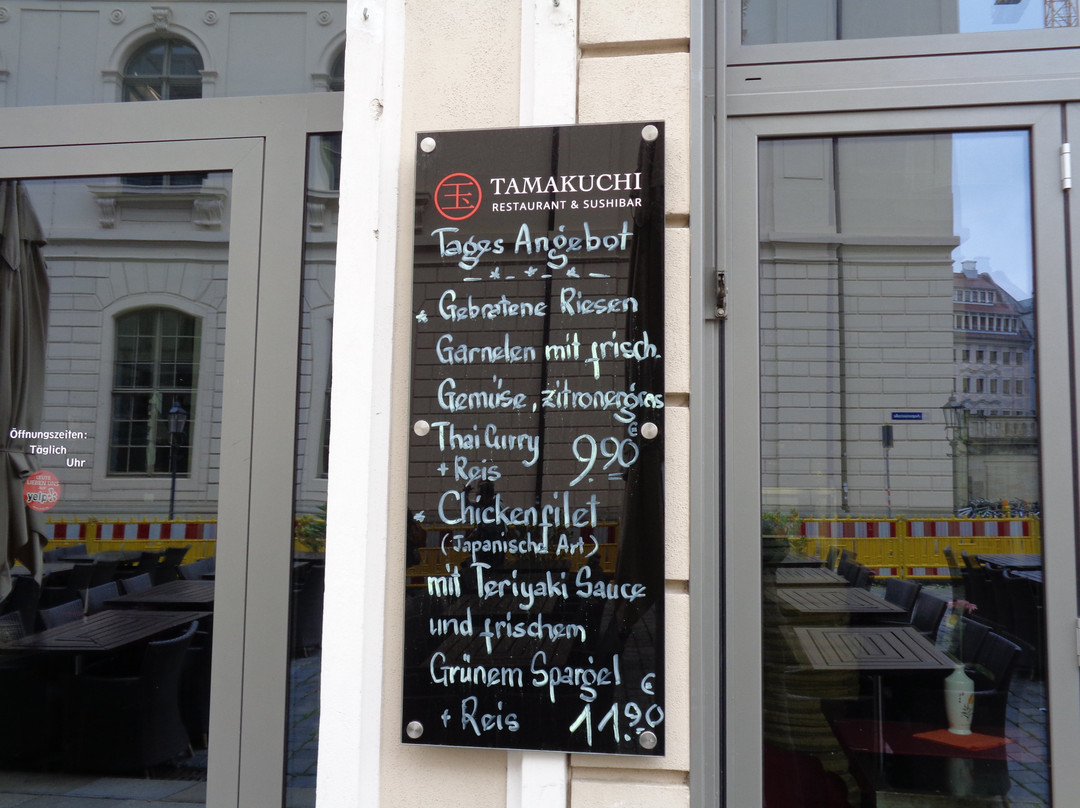 玉 TAMAKUCHI
RESTAURANT & SUSHIBAR
Tages Angebot
* Gebratene Riesen
Garnelen mit frisch.
Gemüse, zitronengras
Thai Curry
+ Reis 9.90 €
* Chickenfilet
(Japanische Art)
mit Teriyaki Sauce
und frischem
Grünem Spargel
+ Reis 11.90 €
Öffnungszeiten:
Täglich
Uhr
yelp